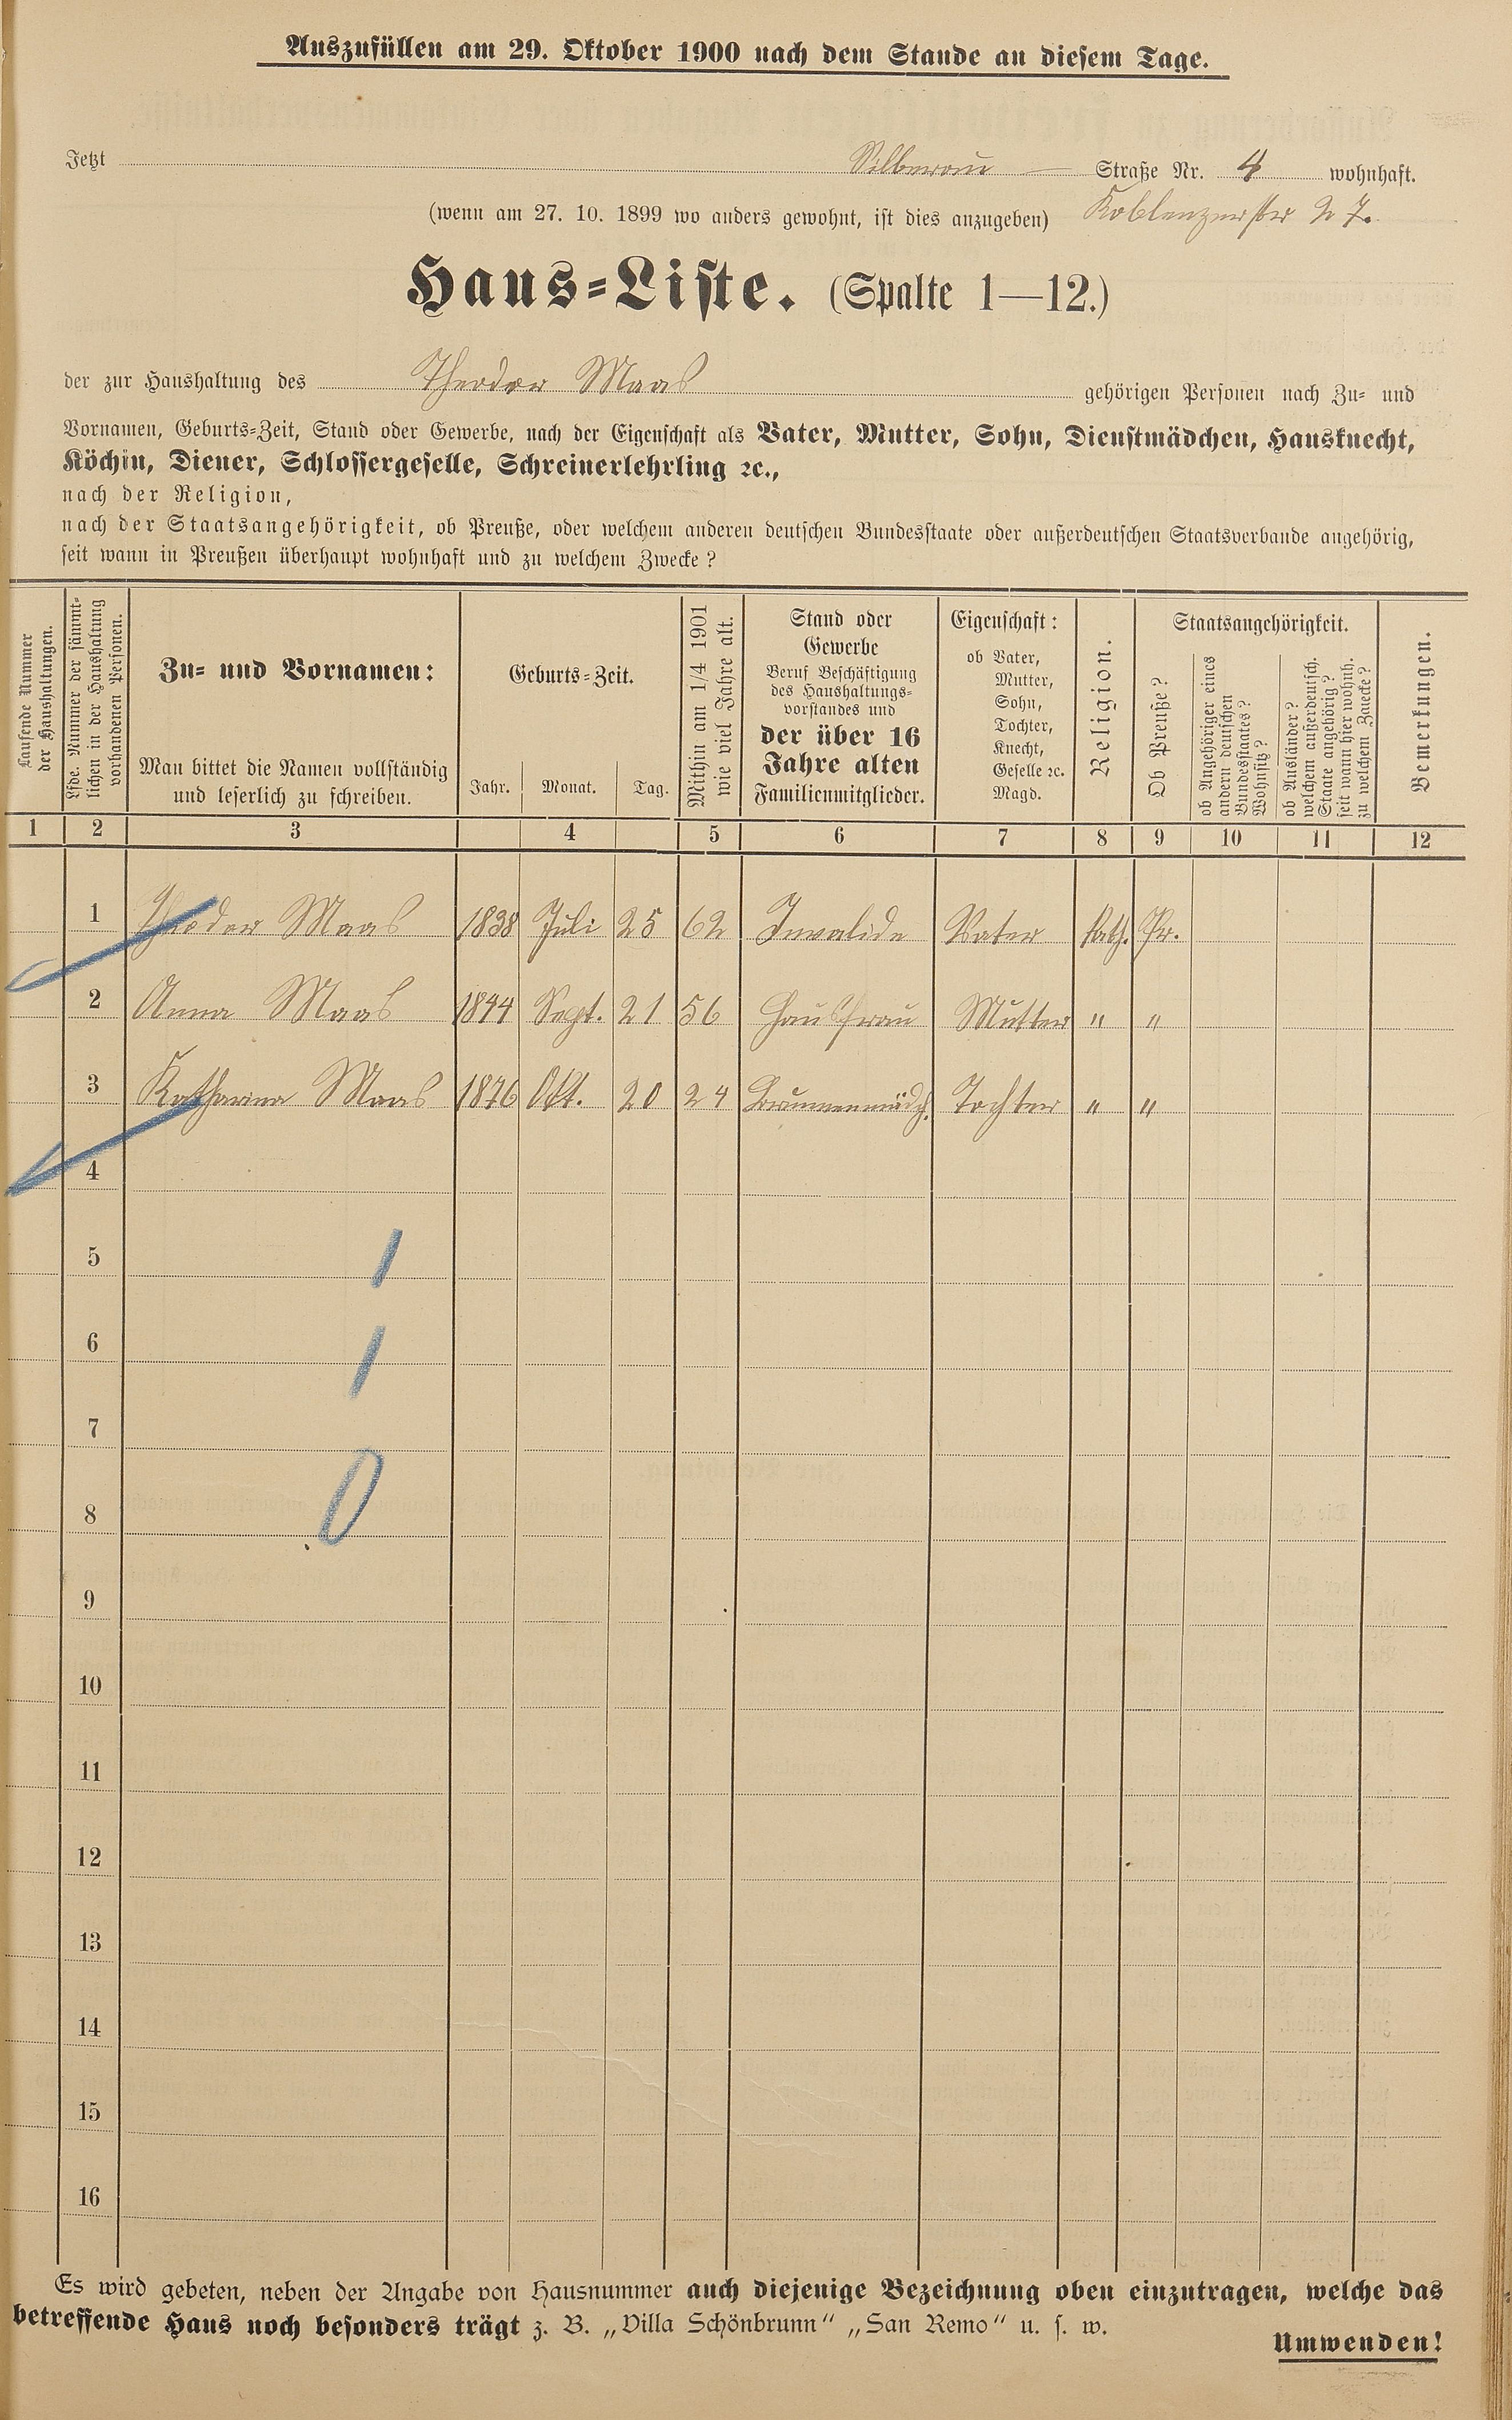 Auszufüllen am 29. Oktober 1900 nach dem Stande an diesem Tage.
Jetzt Silberau — Straße Nr. 4 wohnhaft.
(wenn am 27. 10. 1899 wo anders gewohnt, ist dies anzugeben) Koblenzerstr 27.
Haus-Liste. (Spalte 1—12.)
der zur Haushaltung des Theodor Maas gehörigen Personen nach Zu- und
Vornamen, Geburts-Zeit, Stand oder Gewerbe, nach der Eigenschaft als Vater, Mutter, Sohn, Dienstmädchen, Hausknecht,
Köchin, Diener, Schlossergeselle, Schreinerlehrling ꝛc.,
nach der Religion,
nach der Staatsangehörigkeit, ob Preuße, oder welchem anderen deutschen Bundesstaate oder außerdeutschen Staatsverbande angehörig,
seit wann in Preußen überhaupt wohnhaft und zu welchem Zwecke?
Laufende Nummer
der Haushaltungen.
Lfde. Nummer der sämmt-
lichen in der Haushaltung
vorhandenen Personen.
Zu- und Vornamen:
Man bittet die Namen vollständig
und leserlich zu schreiben.
Geburts-Zeit.
Jahr. Monat. Tag.
Mithin am 1/4 1901
wie viel Jahre alt.
Stand oder
Gewerbe
Beruf Beschäftigung
des Haushaltungs-
vorstandes und
der über 16
Jahre alten
Familienmitglieder.
Eigenschaft:
ob Vater,
Mutter,
Sohn,
Tochter,
Knecht,
Geselle ꝛc.
Magd.
Religion.
Staatsangehörigkeit.
Ob Preuße?
ob Angehöriger eines
andern deutschen
Bundesstaates?
Wohnsitz?
ob Ausländer?
welchem außerdeutsch.
Staate angehörig?
seit wann hier wohnh.
zu welchem Zwecke?
Bemerkungen.
1 2 3 4 5 6 7 8 9 10 11 12
1 Theodor Maas 1838 Juli 25 62 Invalide Vater kath. Pr.
2 Anna Maas 1844 Sept. 21 56 Hausfrau Mutter " "
3 Katharina Maas 1876 Okt. 20 24 Brunnenmädch. Tochter " "
4
5 1
6 1
7
8 0
9
10
11
12
13
14
15
16
Es wird gebeten, neben der Angabe von Hausnummer auch diejenige Bezeichnung oben einzutragen, welche das
betreffende Haus noch besonders trägt z. B. „Villa Schönbrunn“ „San Remo“ u. s. w.
Umwenden!